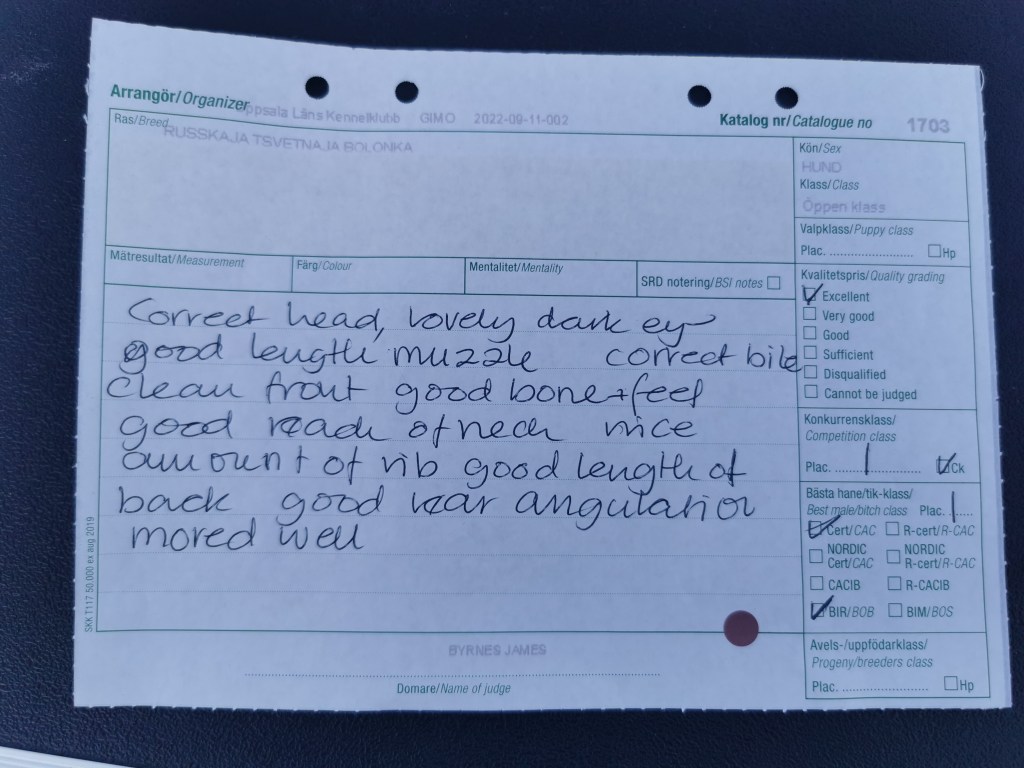 Arrangör/Organizer
Uppsala Läns Kennelklubb GIMO 2022-09-11-002
Katalog nr/Catalogue no 1703
Ras/Breed
RUSSKAJA TSVETNAJA BOLONKA
Kön/Sex
HUND
Klass/Class
Öppen klass
Valpklass/Puppy class
Plac. Hp
Mätresultat/Measurement
Färg/Colour
Mentalitet/Mentality
SRD notering/BSI notes
Correct head, lovely dark eye
good length muzzle correct bite
clean front good bone + feet
good reach of neck nice
amount of rib good length of
back good rear angulation
moved well
Kvalitetspris/Quality grading
Excellent
Very good
Good
Sufficient
Disqualified
Cannot be judged
Konkurrensklass/
Competition class
Plac. 1 Ck
Bästa hane/tik-klass/
Best male/bitch class Plac. 1
Cert/CAC R-cert/R-CAC
NORDIC Cert/CAC NORDIC R-cert/R-CAC
CACIB R-CACIB
BIR/BOB BIM/BOS
Avels-/uppfödarklass/
Progeny/breeders class
Plac. Hp
BYRNES JAMES
Domare/Name of judge
SKK T117 50.000 ex aug 2019